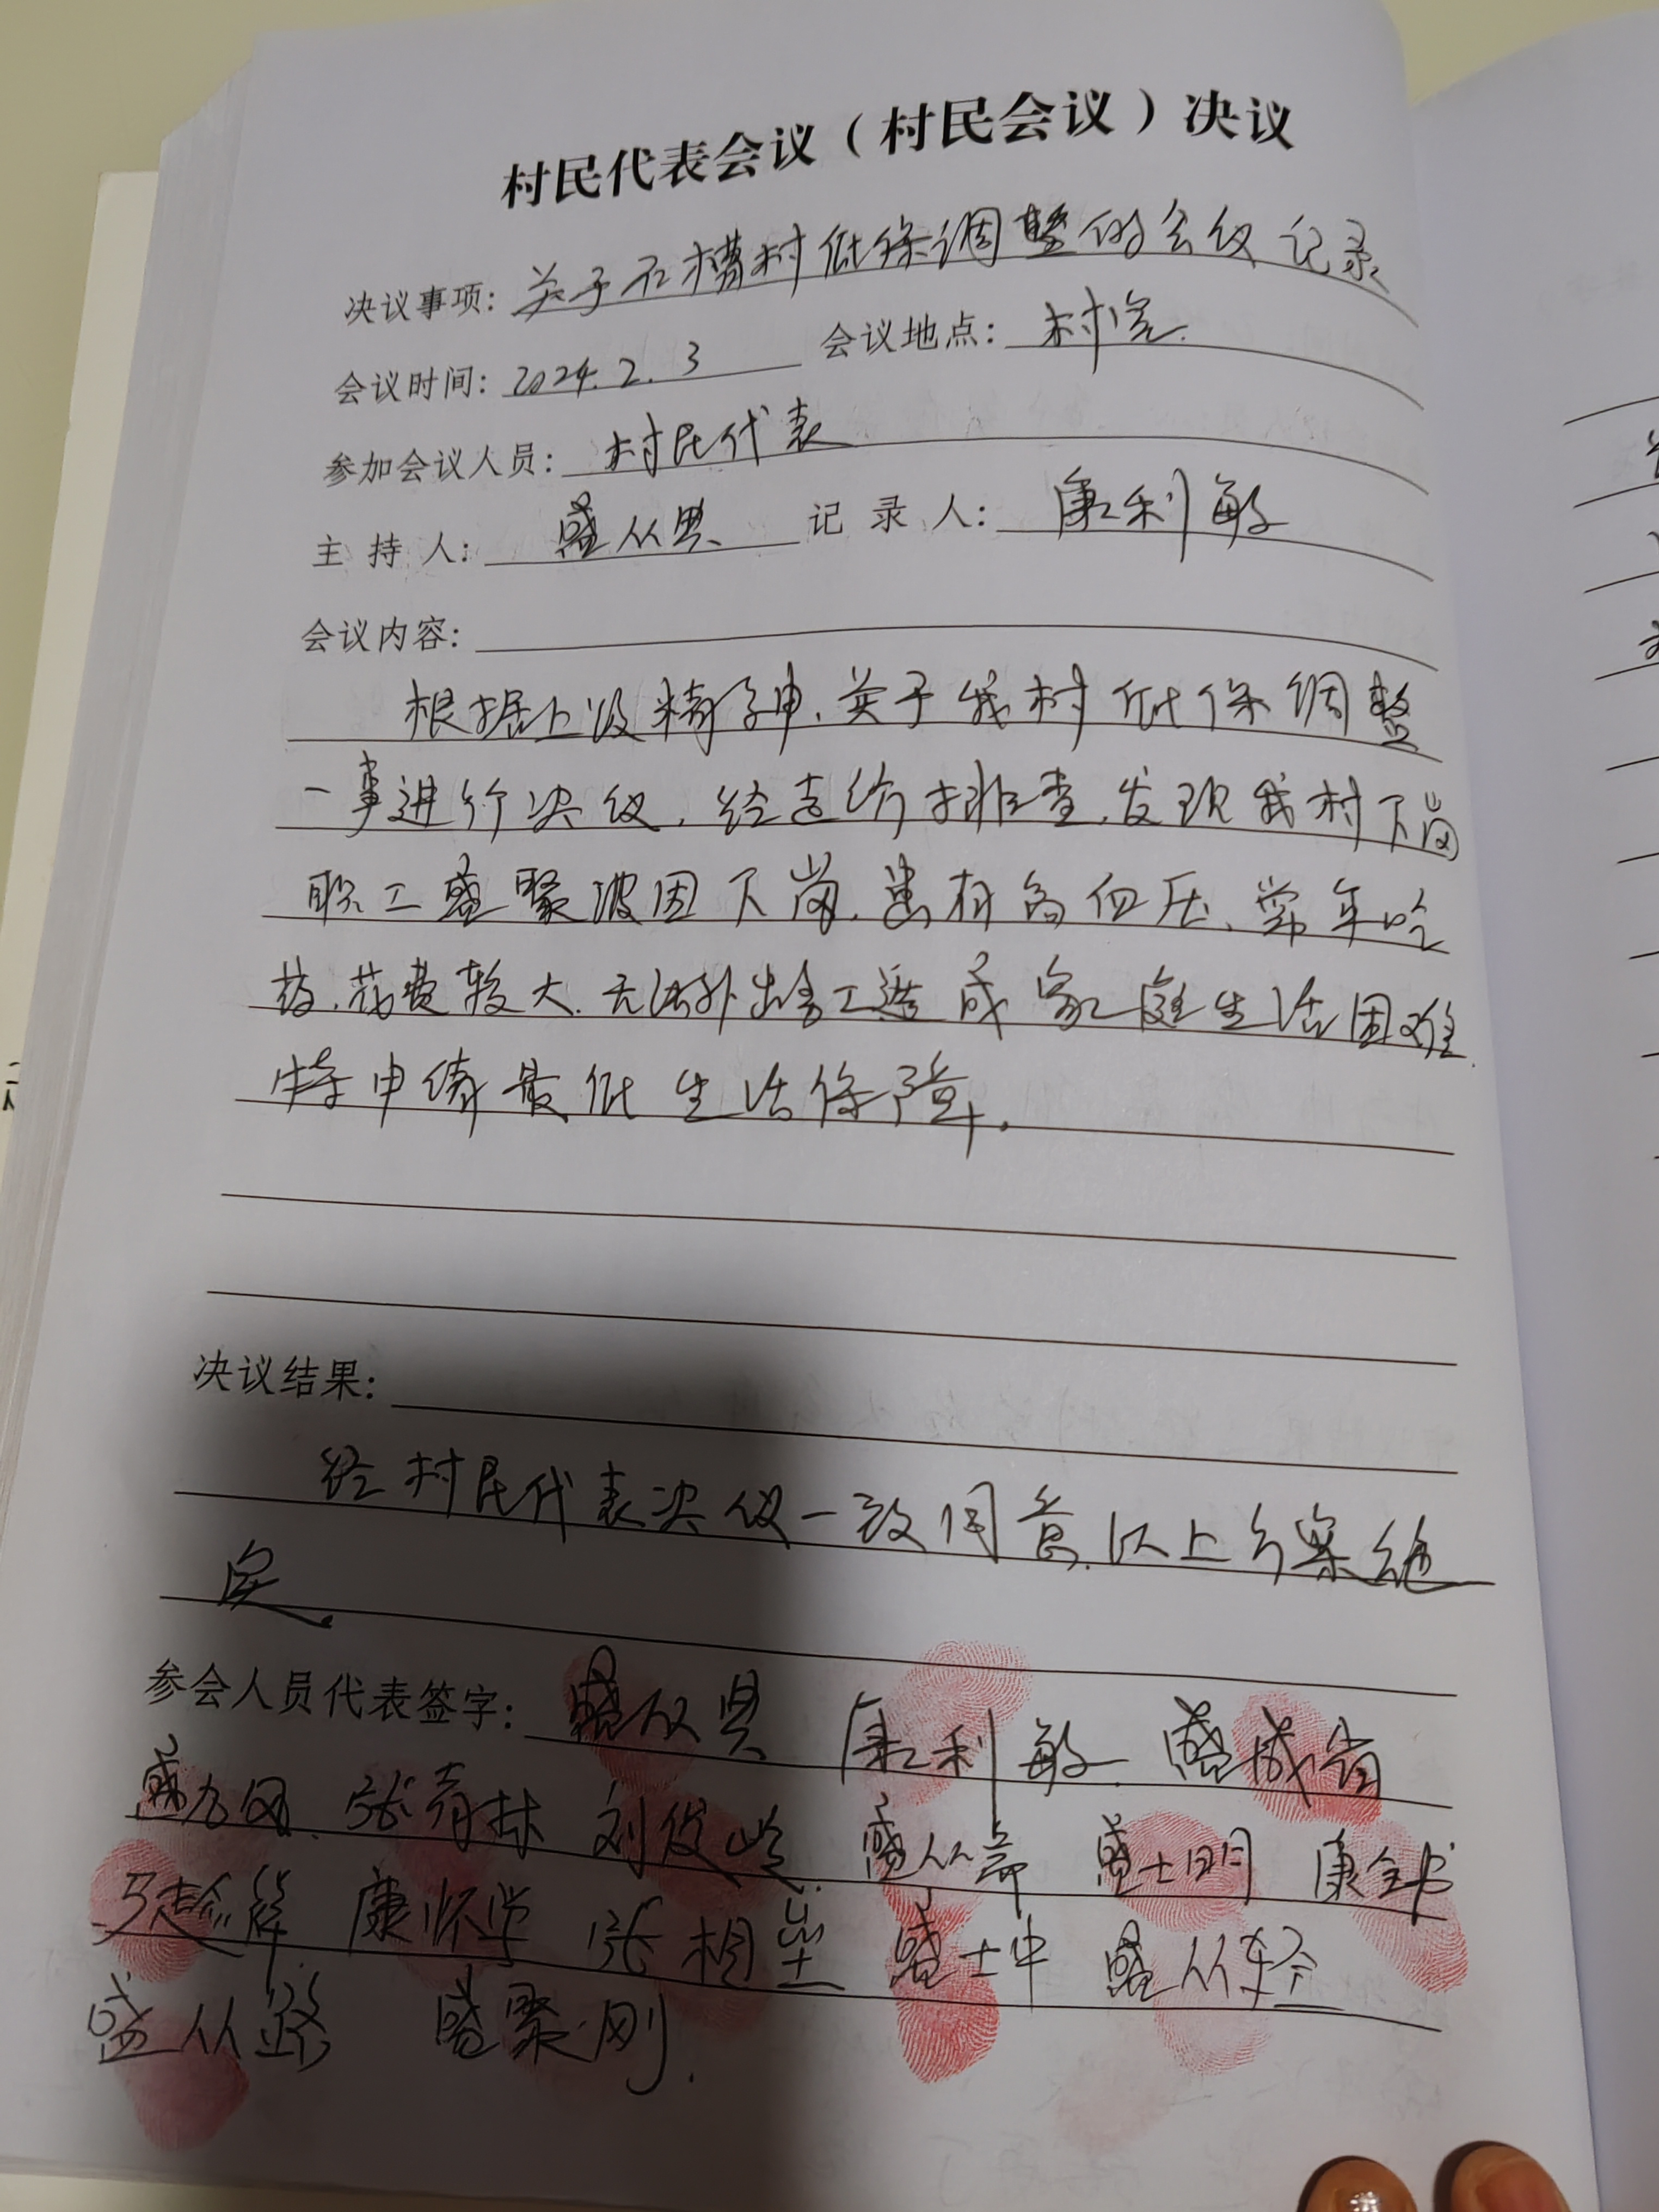 村民代表会议（村民会议）决议
决议事项：关于石槽村低保调整的会议记录
会议时间：2024.2.3 会议地点：村室.
参加会议人员：村民代表
主持人：盛从具 记录人：康利敏
会议内容：
根据上级精神、关于我村低保调整
一事进行决议，经走访排查，发现我村下岗
职工盛聚波因下岗，患有高血压、常年吃
药，花费较大.无法外出务工造成家庭生活困难
特申请最低生活保障。
决议结果：
经村民代表决议一致同意.以上方案
定。
参会人员代表签字：盛从具 康利敏 盛成
张青林 刘俊岭 盛从 盛士明 康全书
康怀学 张相 盛士中 盛从轻
盛从路 盛聚刚.